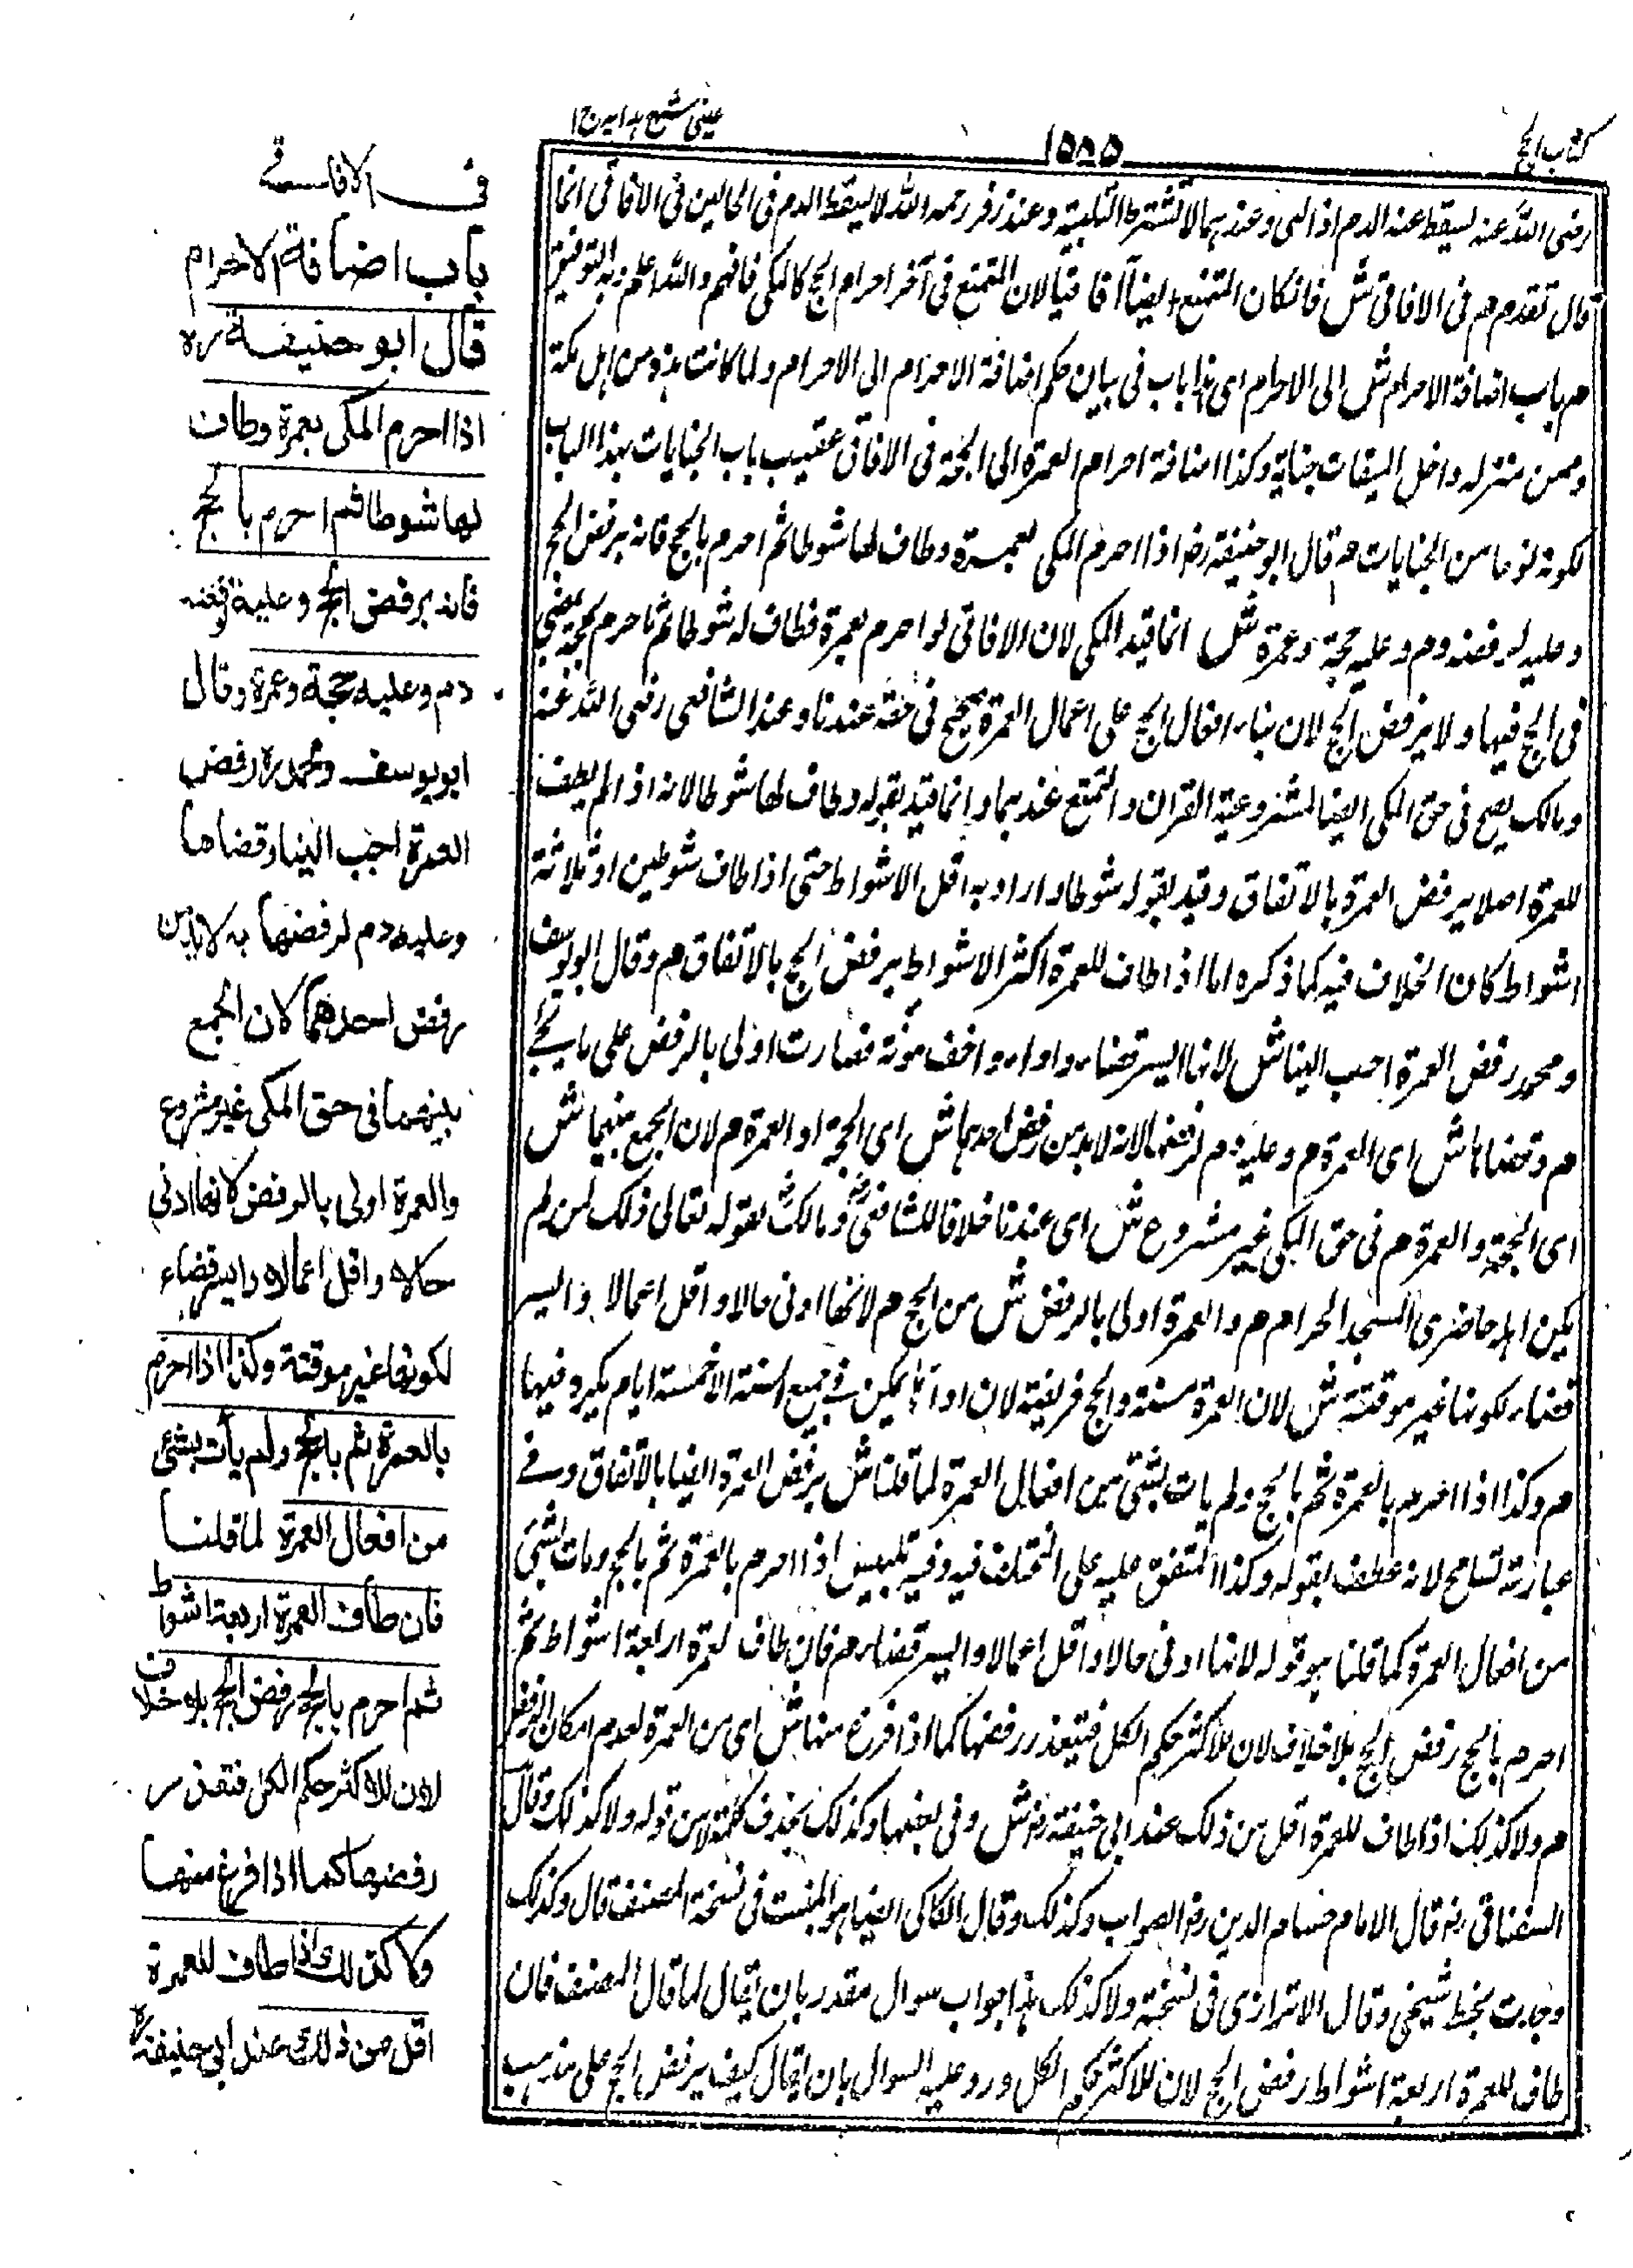 كتاب الحج
١٥٨٥
عينى شرح هدايه ج ١
رضى الله عنه يسقط عنه الدم اذا لبى وعندهما لا تشترط التلبية وعند زفر رحمه الله لا يسقط الدم فى الحالين فى الافاقى انما
قال تقدم هم فى الافاقى ش فان كان المتمتع ايضا آفاقيا لان المتمتع فى آخر احرام الحج كالمكى فافهم والله اعلم وبه التوفيق
م باب اضافة الاحرام ش الى الاحرام اى هذا باب فى بيان حكم اضافة الاحرام الى الاحرام ولما كانت هذه من اهل مكة
وممن منزله داخل الميقات جناية وكذا اضافة احرام العمرة الى الحجة فى الافاقى عقيب باب الجنايات بهذا الباب
لكونه نوعا من الجنايات م قال ابو حنيفة رض اذا احرم المكى بعمرة وطاف لها شوطا ثم احرم بالحج فانه يرفض الحج
وعليه لرفضه دم وعليه حجة وعمرة ش انما قيد المكى لان الافاقى لو احرم بعمرة فطاف له شوطا ثم احرم بحجة يمضى
فى الحج فيها ولا يرفض الحج لان بناء افعال الحج على اعمال العمرة يصح فى حقه عندنا وعند الشافعى رضى الله عنه
ومالك يصح فى حق المكى ايضا لمشروعية القران والتمتع عندهما وانما قيد بقوله وطاف لها شوطا لانه اذا لم يطف
للعمرة اصلا يرفض العمرة بالاتفاق وقيد بقوله شوطا واراد به اقل الاشواط حتى اذا طاف شوطين او ثلاثة
اشواط كان الخلاف فيه كما ذكره اما اذا طاف للعمرة اكثر الاشواط يرفض الحج بالاتفاق م وقال ابو يوسف
ومحمد رفض العمرة احب الينا ش لانها ايسر قضاء واداء واخف مؤنة فصارت اولى بالرفض على ما يجئ
م وقضاها ش اى العمرة م وعليه دم لرفضها لانه لا بد من رفض احدهما ش اى الحجة او العمرة م لان الجمع بينهما ش
اى الحجة والعمرة م فى حق المكى غير مشروع ش اى عندنا خلافا للشافعى ومالك لقوله تعالى ذلك لمن لم
يكن اهله حاضرى المسجد الحرام م والعمرة اولى بالرفض ش من الحج م لانها ادنى حالا واقل اعمالا وايسر
قضاء لكونها غير موقتة ش لان العمرة سنة والحج فريضة لان اداءها يمكن فى جميع السنة الا خمسة ايام يكره فيها
م وكذا اذا احرم بالعمرة ثم بالحج ولم يات بشئ من افعال العمرة لما قلنا ش يرفض العمرة ايضا بالاتفاق وفى
عبارته تسامح لانه عطف بقوله وكذا المتفق عليه على المختلف فيه وفيه تلبيس اذا احرم بالعمرة ثم بالحج ويات بشئ
من افعال العمرة كما قلنا هو قوله لانها ادنى حالا واقل اعمالا وايسر قضاء م فان طاف لعمرة اربعة اشواط ثم
احرم بالحج رفض الحج بلا خلاف لان للاكثر حكم الكل فيتعذر رفضها كما اذا فرغ منها ش اى من العمرة لعدم امكان الرفض
م ولا كذلك اذا طاف للعمرة اقل من ذلك عند ابى حنيفة رض ش وفى بعضها وكذلك بحذف كلمة لا من قوله ولا كذلك وقال
السغناقى رض قال الامام حسام الدين رض الصواب وكذلك وقال الكاكى ايضا هو المثبت فى نسخة المصنف قال وكذلك
وجدت بخط شيخى وقال الاترازى فى نسخته ولا كذلك هذا جواب سوال مقدر بان يقال لما قال المصنف فان
طاف للعمرة اربعة اشواط رفض الحج لان للاكثر حكم الكل ورد عليه السوال بان يقال كيف يرفض الحج على مذهب
فى الافاقى
باب اضافة الاحرام
قال ابو حنيفة ره
اذا احرم المكى بعمرة وطاف
لها شوطا ثم احرم بالحج
فانه يرفض الحج وعليه لرفضه
دم وعليه حجة وعمرة وقال
ابو يوسف ومحمد ره رفض
العمرة احب الينا وقضاها
وعليه دم لرفضها لانه لابد من
رفض احدهما لان الجمع
بينهما فى حق المكى غير مشروع
والعمرة اولى بالرفض لانها ادنى
حالا واقل اعمالا وايسر قضاء
لكونها غير موقتة وكذا اذا احرم
بالعمرة ثم بالحج ولم يأت بشئ
من افعال العمرة لما قلنا
فان طاف العمرة اربعة اشواط
ثم احرم بالحج رفض الحج بلا خلاف
لان للاكثر حكم الكل فتعذر
رفضها كما اذا فرغ منها
ولا كذلك اذا طاف للعمرة
اقل من ذلك عند ابى حنيفة ره